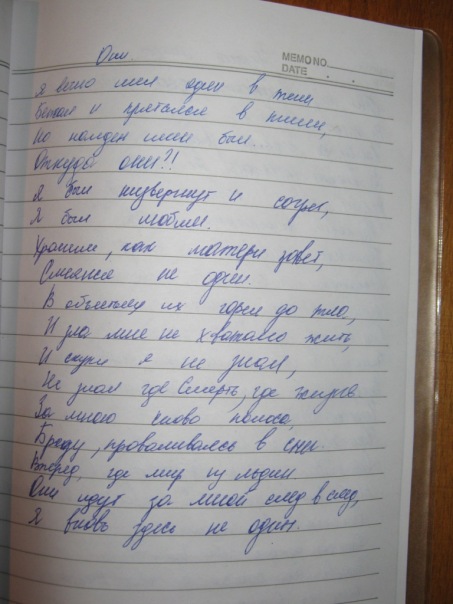 Они.
MEMO NO.
DATE . .
Я вечно шел один в тени
Бежал и прятался в пыли,
Но найден ими был.
Откуда они?!
Я был низвергнут и согрет,
Я был любим.
Храними, как матери завет,
Смеянье не один.
В объятьях их горел до тла,
И зла мне не хватало жить,
И скуки я не знал,
Не знал где Смерть, где жизнь.
За мною снова полоса,
Бреду, проваливаясь в сны
Вперед, где мир из льдин
Они идут за мной след в след,
Я вновь здесь не один.